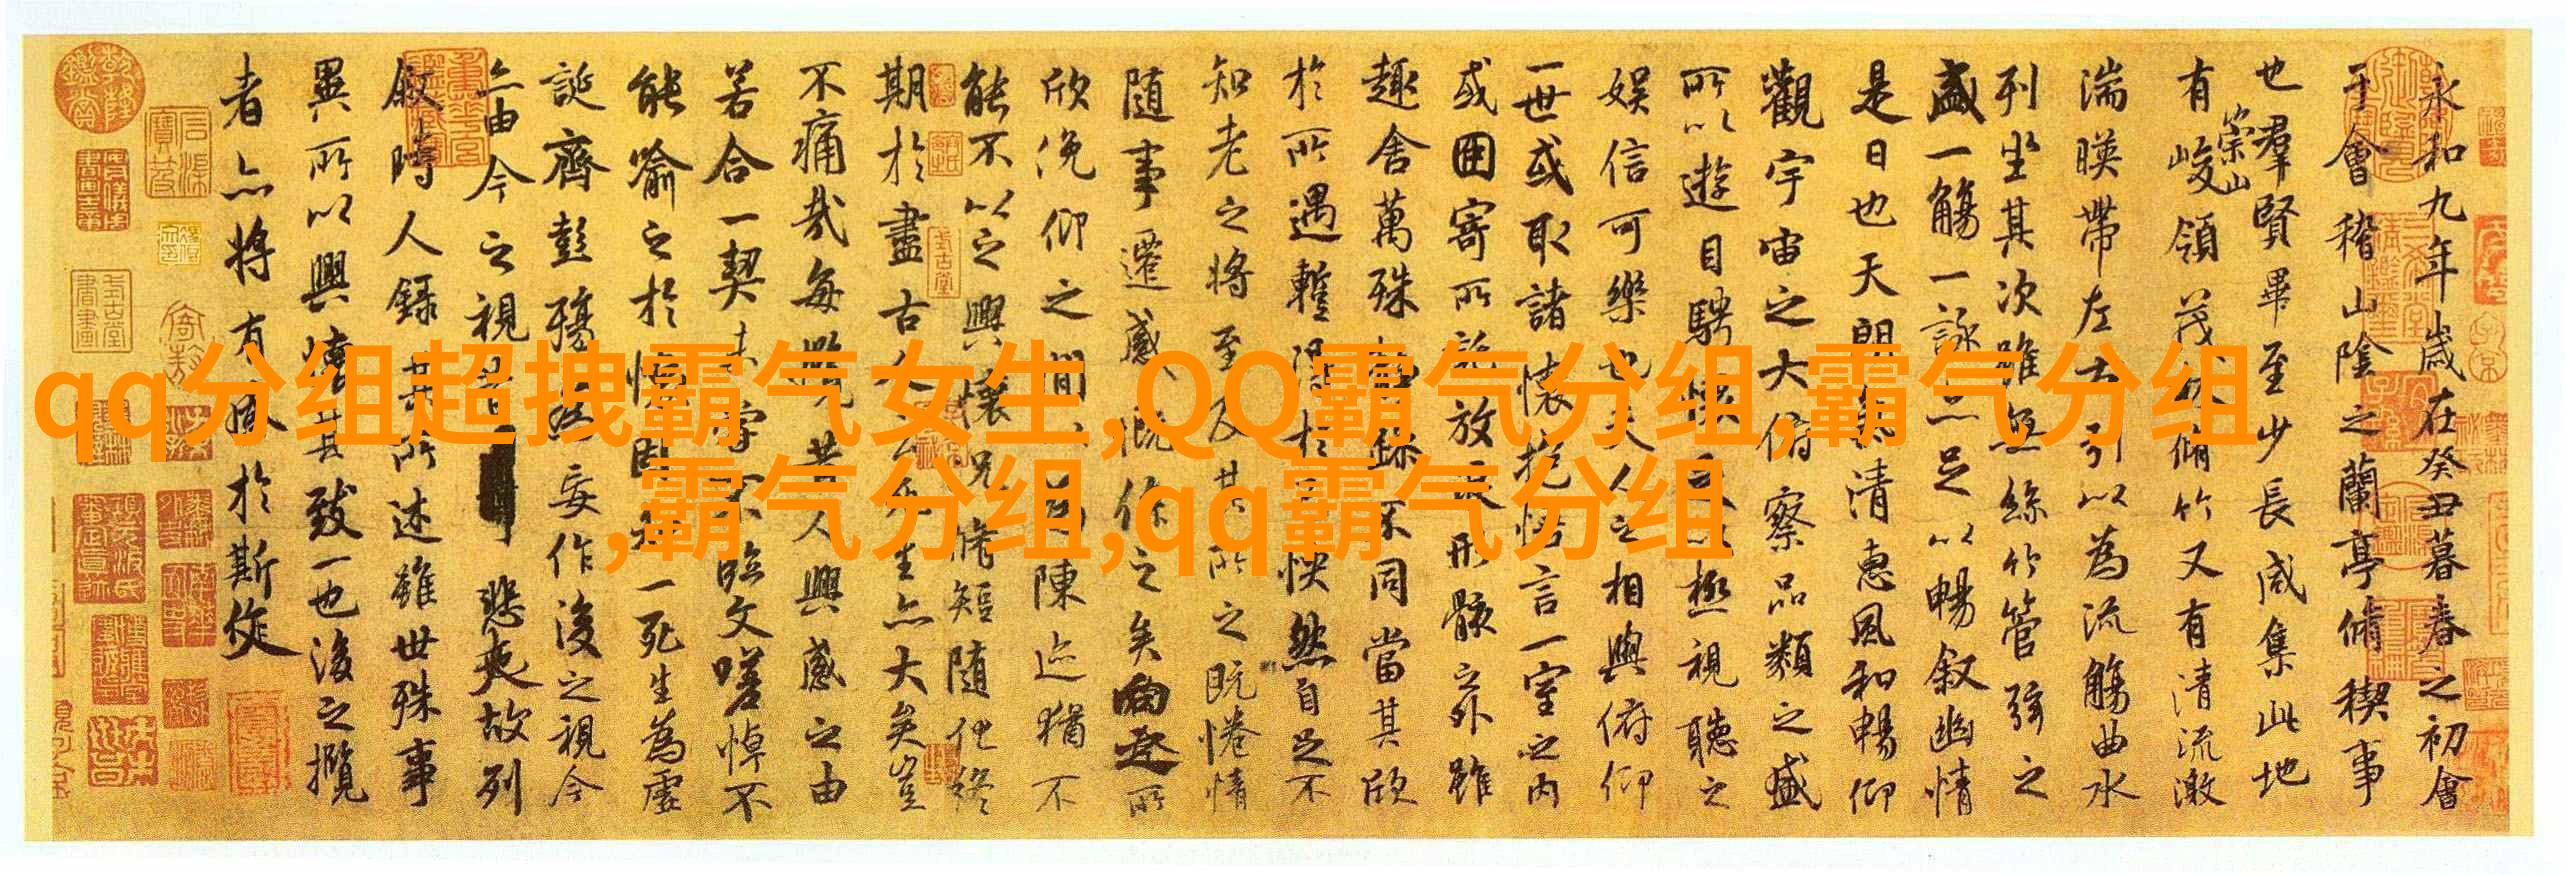 qq分组超拽霸气女生,QQ霸气分组,霸气分组
,霸气分组,qq霸气分组
永和九年歲在癸丑暮春之初會
于會稽山陰之蘭亭脩稧事
也羣賢畢至少長咸集此地
有崇山峻領茂林脩竹又有清流激
湍暎帶左右引以為流觴曲水
列坐其次雖無絲竹管弦之
盛一觴一詠亦足以暢敘幽情
是日也天朗氣清惠風和暢仰
觀宇宙之大俯察品類之盛
所以遊目騁懷足以極視聽之
娛信可樂也夫人之相與俯仰
一世或取諸懷抱悟言一室之內
或因寄所託放浪形骸之外雖
趣舍萬殊靜躁不同當其欣
於所遇暫得於己怏然自足不
知老之將至及其所之既惓情
隨事遷感慨係之矣向之所
欣俛仰之間以為陳迹猶不
能不以之興懷況脩短隨化終
期於盡古人云死生亦大矣豈
不痛哉每攬昔人興感之由
若合一契未嘗不臨文嗟悼不
能喻之於懷固知一死生為虛
誕齊彭殤為妄作後之視今
亦由今之視昔悲夫故列
敘時人錄其所述雖世殊事
異所以興懷其致一也後之攬
者亦將有感於斯文